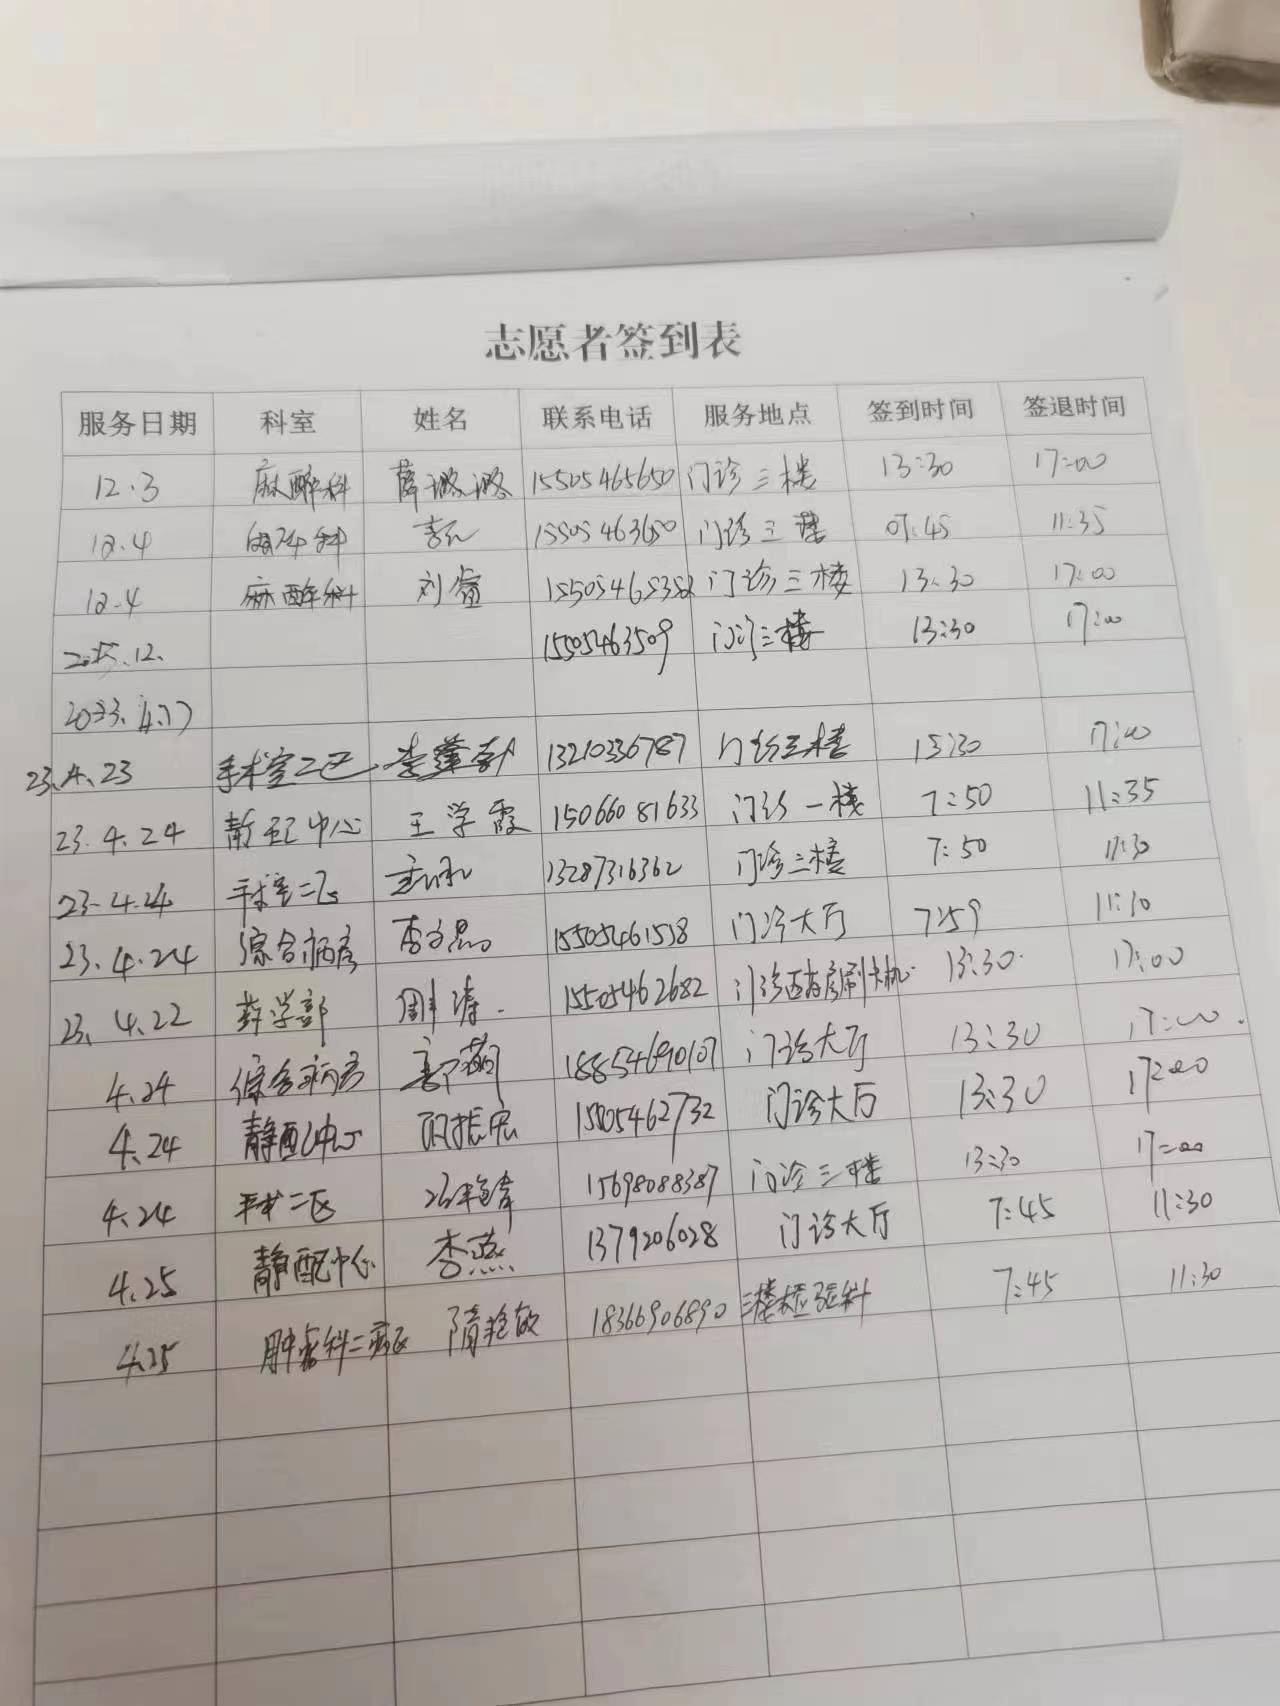 志愿者签到表
服务日期 科室 姓名 联系电话 服务地点 签到时间 签退时间
12.3 麻醉科 薛璐璐 15505465650 门诊三楼 13:30 17:00
12.4 麻醉科 15505463650 门诊三楼 07:45 11:35
12.4 麻醉科 刘睿 门诊三楼 13:30 17:00
12. 15505463509 门诊三楼 13:30 17:00
2023.4.17
23.4.23 手术室二区 13210336787 门诊三楼 13:30 17:00
23.4.24 静配中心 王学霞 15066081633 门诊一楼 7:50 11:35
23.4.24 手术室二区 13287316362 门诊三楼 7:50 11:30
23.4.24 综合病房 15505461538 门诊大厅 7:59 11:30
23.4.22 药学部 周涛 15505462682 门诊西药房刷卡机 13:30 17:00
4.24 综合病房 郭萌 18854690107 门诊大厅 13:30 17:00
4.24 静配中心 15505462732 门诊大厅 13:30 17:00
4.24 手术二区 15698088387 门诊三楼 13:30 17:00
4.25 静配中心 李燕 1379206028 门诊大厅 7:45 11:30
4.25 肿瘤科二病区 隋艳敏 18366906890 三楼检验科 7:45 11:30